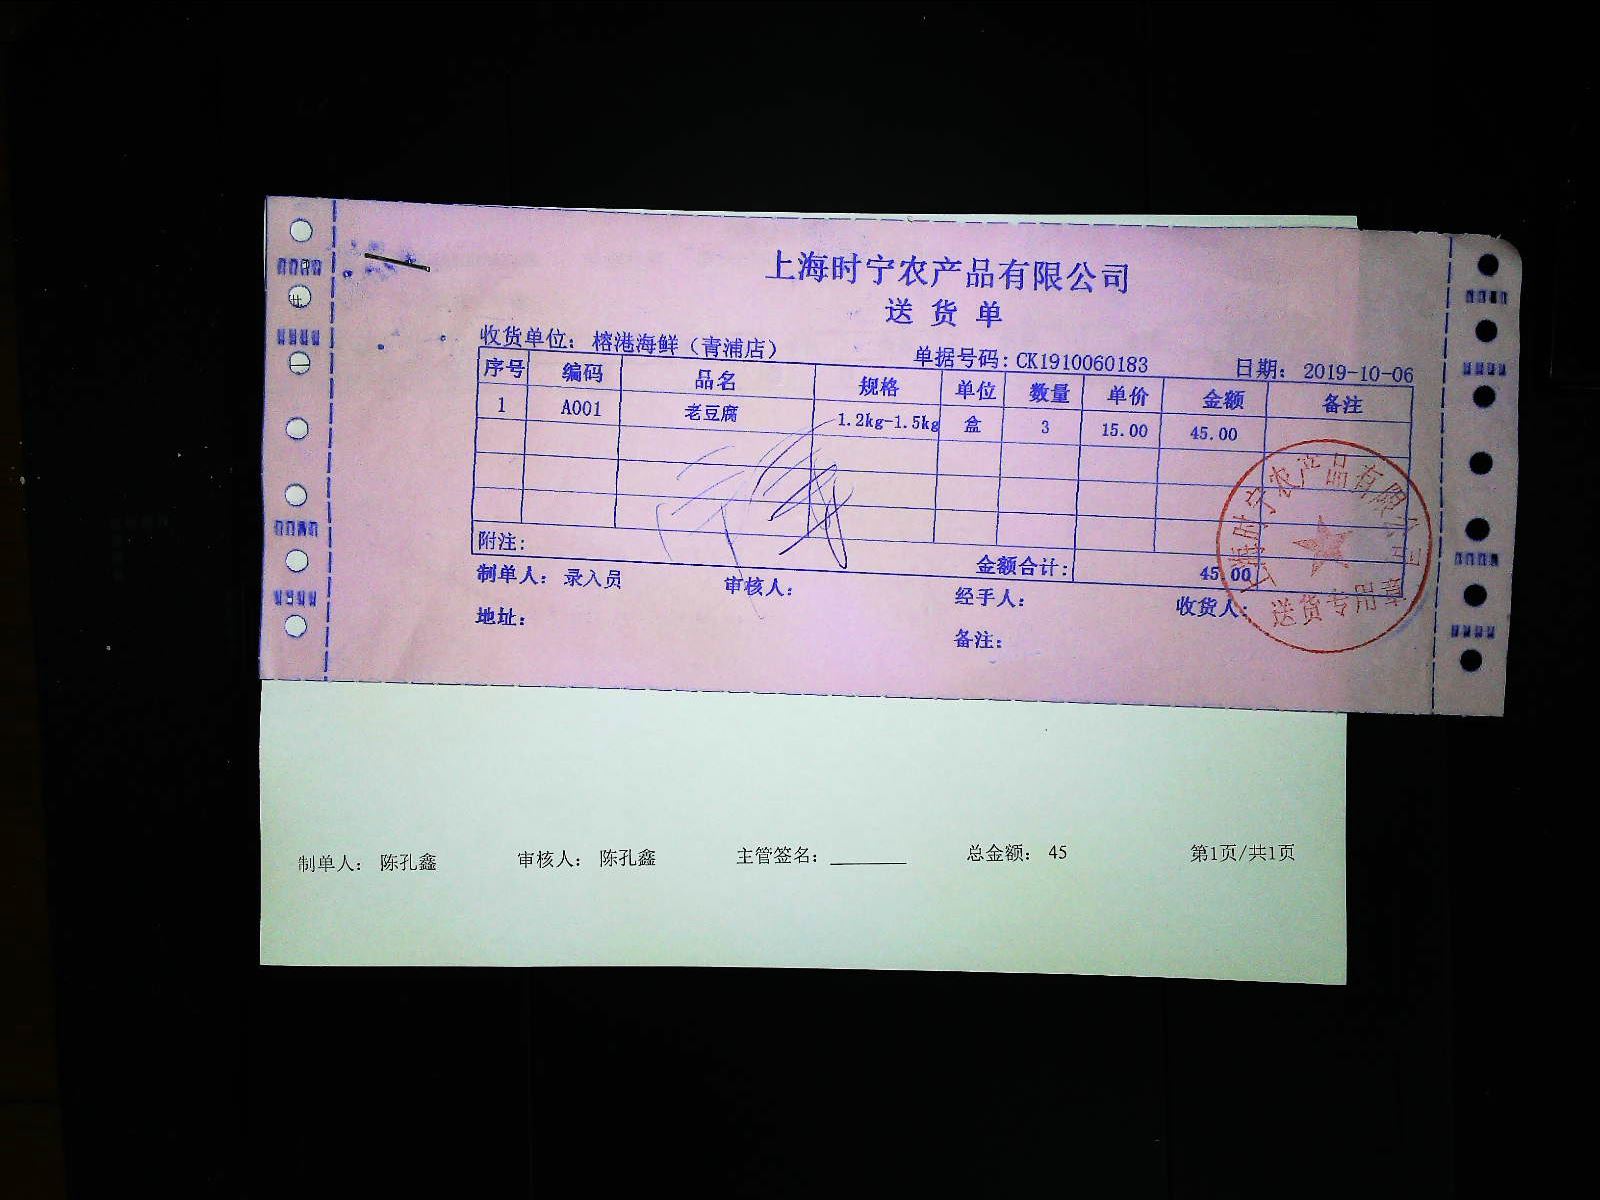 上海时宁农产品有限公司
送货单
收货单位：榕港海鲜（青浦店） 单据号码：CK1910060183 日期：2019-10-06
序号 编码 品名 规格 单位 数量 单价 金额 备注
1 A001 老豆腐 1.2kg-1.5kg 盒 3 15.00 45.00
附注： 金额合计： 45.00
制单人：录入员 审核人： 经手人： 收货人：
地址： 备注：
上海时宁农产品有限公司
送货专用章
制单人： 陈孔鑫 审核人： 陈孔鑫 主管签名：________ 总金额： 45 第1页/共1页